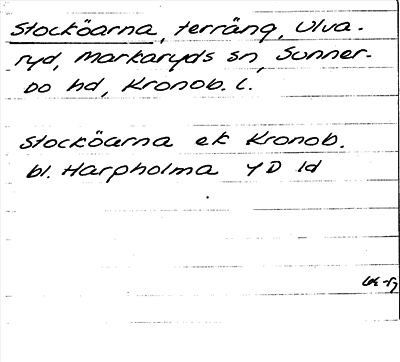 Stocköarna, terräng, Ulva-
ryd, Markaryds sn, Sunner-
bo hd, Kronob. l.
Stocköarna ek Kronob.
bl. Harpholma 4 D 1d